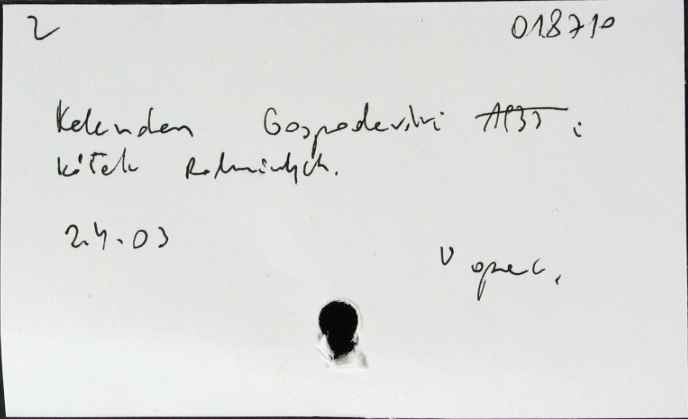 2 018710
Kalendarz Gospodarski i
Kółek Rolniczych.
24.03
V oprac.